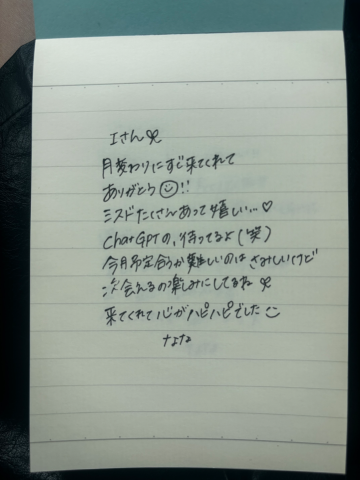 Iさん
月変わりにすぐ来てくれて
ありがとう!!
ミスドたくさんあって嬉しい...♡
ChatGPTの、待ってるよ(笑)
今月予定合うか難しいのは さみしいけど
次会えるの楽しみにしてるね
来てくれて心がハピハピでした
なな